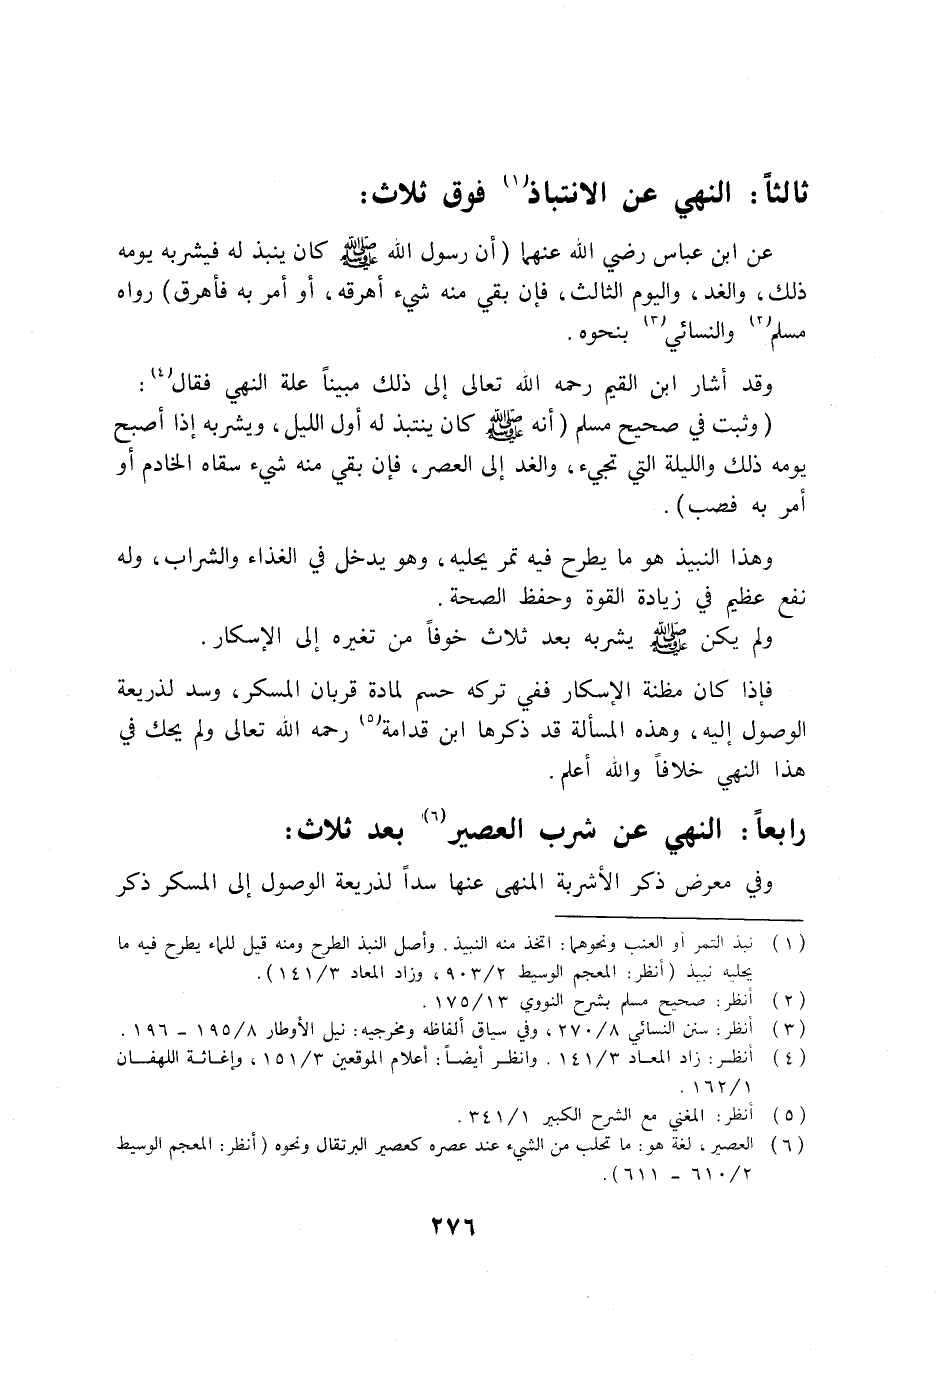 ثالثاً: النهي عن الانتباذ(١) فوق ثلاث:
عن ابن عباس رضي الله عنهما (أن رسول الله ﷺ كان ينبذ له فيشربه يومه
ذلك، والغد، واليوم الثالث، فإن بقي منه شيء أهرقه، أو أمر به فأهرق) رواه
مسلم(٢) والنسائي(٣) بنحوه.
وقد أشار ابن القيم رحمه الله تعالى إلى ذلك مبيناً علة النهي فقال(٤):
(وثبت في صحيح مسلم (أنه ﷺ كان ينتبذ له أول الليل، ويشربه إذا أصبح
يومه ذلك والليلة التي تجيء، والغد إلى العصر، فإن بقي منه شيء سقاه الخادم أو
أمر به فصب).
وهذا النبيذ هو ما يطرح فيه تمر يحليه، وهو يدخل في الغذاء والشراب، وله
نفع عظيم في زيادة القوة وحفظ الصحة.
ولم يكن ﷺ يشربه بعد ثلاث خوفاً من تغيره إلى الإسكار.
فإذا كان مظنة الإسكار ففي تركه حسم لمادة قربان المسكر، وسد لذريعة
الوصول إليه، وهذه المسألة قد ذكرها ابن قدامة(٥) رحمه الله تعالى ولم يحك في
هذا النهي خلافاً والله أعلم.
رابعاً: النهي عن شرب العصير(٦) بعد ثلاث:
وفي معرض ذكر الأشربة المنهى عنها سداً لذريعة الوصول إلى المسكر ذكر
(١) نبذ التمر أو العنب ونحوهما: اتخذ منه النبيذ. وأصل النبذ الطرح ومنه قيل للماء يطرح فيه ما
يحليه نبيذ (أنظر: المعجم الوسيط ٩٠٣/٢، وزاد المعاد ١٤١/٣).
(٢) أنظر: صحيح مسلم بشرح النووي ١٧٥/١٣.
(٣) أنظر: سنن النسائي ٢٧٠/٨، وفي سياق ألفاظه ومخرجيه: نيل الأوطار ١٩٥/٨ - ١٩٦.
(٤) أنظر: زاد المعاد ١٤١/٣. وانظر أيضاً: أعلام الموقعين ١٥١/٣، وإغاثة اللهفان
١٦٢/١.
(٥) أنظر: المغني مع الشرح الكبير ٣٤١/١.
(٦) العصير، لغة هو: ما تحلب من الشيء عند عصره كعصير البرتقال ونحوه (أنظر: المعجم الوسيط
٦١٠/٢ - ٦١١).
٢٧٦